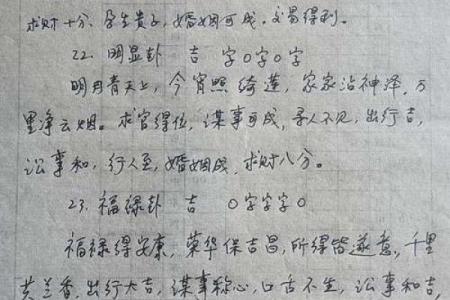 求财十分、孕生贵子，婚姻可成。交易得利。
22. 明显卦 吉 字0字0字
明月青天上，今宵照绮莲，家家沾神泽，万
里净云烟。求官得位，谋事可成，寻人不见，出行吉，
讼事和，行人至，婚姻成，求财八分。
23. 福禄卦 吉 0字字字0
福禄得安康，荣华保吉昌，所得皆遂意，千里
共兰香，出行大吉，谋事称心，口舌不生，讼事和吉，